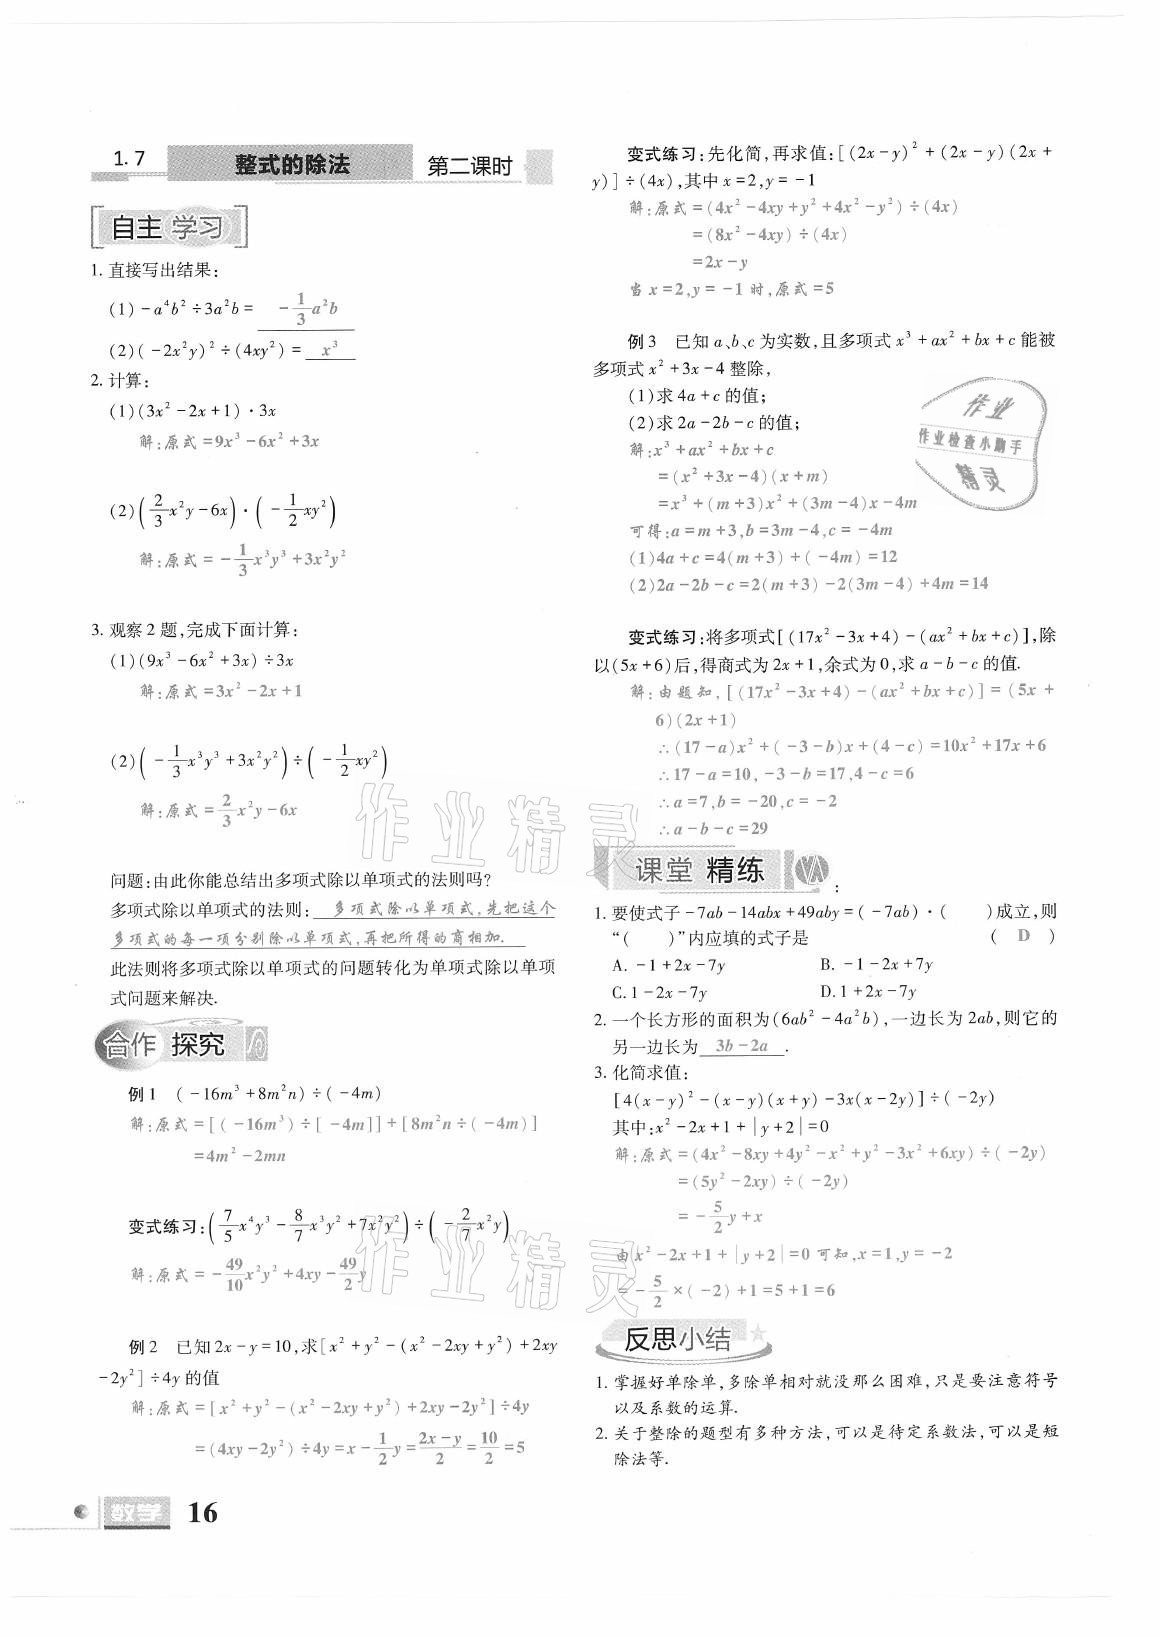 1.7 整式的除法 第二课时
自主 学习
1. 直接写出结果:
(1) -a⁴b² ÷ 3a²b = -1/3a²b
(2) (-2x²y)² ÷ (4xy²) = x³
2. 计算:
(1) (3x² - 2x + 1) · 3x
解:原式 = 9x³ - 6x² + 3x
(2) (2/3x²y - 6x) · (-1/2xy²)
解:原式 = -1/3x³y³ + 3x²y²
3. 观察 2 题,完成下面计算:
(1) (9x³ - 6x² + 3x) ÷ 3x
解:原式 = 3x² - 2x + 1
(2) (-1/3x³y³ + 3x²y²) ÷ (-1/2xy²)
解:原式 = 2/3x²y - 6x
问题:由此你能总结出多项式除以单项式的法则吗?
多项式除以单项式的法则: 多项式除以单项式,先把这个
多项式的每一项分别除以单项式,再把所得的商相加.
此法则将多项式除以单项式的问题转化为单项式除以单项
式问题来解决.
合作 探究
例 1 (-16m³ + 8m²n) ÷ (-4m)
解:原式 = [(-16m³) ÷ [-4m]] + [8m²n ÷ (-4m)]
= 4m² - 2mn
变式练习: (7/5x⁴y³ - 8/7x³y² + 7x²y²) ÷ (-2/7x²y)
解:原式 = -49/10x²y² + 4xy - 49/2y
例 2 已知 2x - y = 10,求[x² + y² - (x² - 2xy + y²) + 2xy
- 2y²] ÷ 4y 的值
解:原式 = [x² + y² - (x² - 2xy + y²) + 2xy - 2y²] ÷ 4y
= (4xy - 2y²) ÷ 4y = x - 1/2y = 2x-y/2 = 10/2 = 5
数学 16
变式练习:先化简,再求值:[(2x - y)² + (2x - y)(2x +
y)] ÷ (4x),其中 x = 2,y = -1
解:原式 = (4x² - 4xy + y² + 4x² - y²) ÷ (4x)
= (8x² - 4xy) ÷ (4x)
= 2x - y
当 x = 2,y = -1 时,原式 = 5
例 3 已知 a、b、c 为实数,且多项式 x³ + ax² + bx + c 能被
多项式 x² + 3x - 4 整除,
(1)求 4a + c 的值;
(2)求 2a - 2b - c 的值;
解:x³ + ax² + bx + c
= (x² + 3x - 4)(x + m)
= x³ + (m + 3)x² + (3m - 4)x - 4m
可得:a = m + 3,b = 3m - 4,c = -4m
(1)4a + c = 4(m + 3) + (-4m) = 12
(2)2a - 2b - c = 2(m + 3) - 2(3m - 4) + 4m = 14
作业
作业检查小助手
精灵
变式练习:将多项式[(17x² - 3x + 4) - (ax² + bx + c)],除
以(5x + 6)后,得商式为 2x + 1,余式为 0,求 a - b - c 的值.
解:由题知,[(17x² - 3x + 4) - (ax² + bx + c)] = (5x +
6)(2x + 1)
∴(17 - a)x² + (-3 - b)x + (4 - c) = 10x² + 17x + 6
∴17 - a = 10, -3 - b = 17,4 - c = 6
∴a = 7,b = -20,c = -2
∴a - b - c = 29
课堂 精练 :
1. 要使式子 -7ab - 14abx + 49aby = (-7ab) · ( )成立,则
“( )”内应填的式子是 ( D )
A. -1 + 2x - 7y B. -1 - 2x + 7y
C. 1 - 2x - 7y D. 1 + 2x - 7y
2. 一个长方形的面积为(6ab² - 4a²b),一边长为 2ab,则它的
另一边长为 3b - 2a .
3. 化简求值:
[4(x - y)² - (x - y)(x + y) - 3x(x - 2y)] ÷ (-2y)
其中:x² - 2x + 1 + |y + 2| = 0
解:原式 = (4x² - 8xy + 4y² - x² + y² - 3x² + 6xy) ÷ (-2y)
= (5y² - 2xy) ÷ (-2y)
= -5/2y + x
由 x² - 2x + 1 + |y + 2| = 0 可知,x = 1,y = -2
= -5/2 × (-2) + 1 = 5 + 1 = 6
反思小结
1. 掌握好单除单,多除单相对就没那么困难,只是要注意符号
以及系数的运算.
2. 关于整除的题型有多种方法,可以是待定系数法,可以是短
除法等.
作业精灵
作业精灵